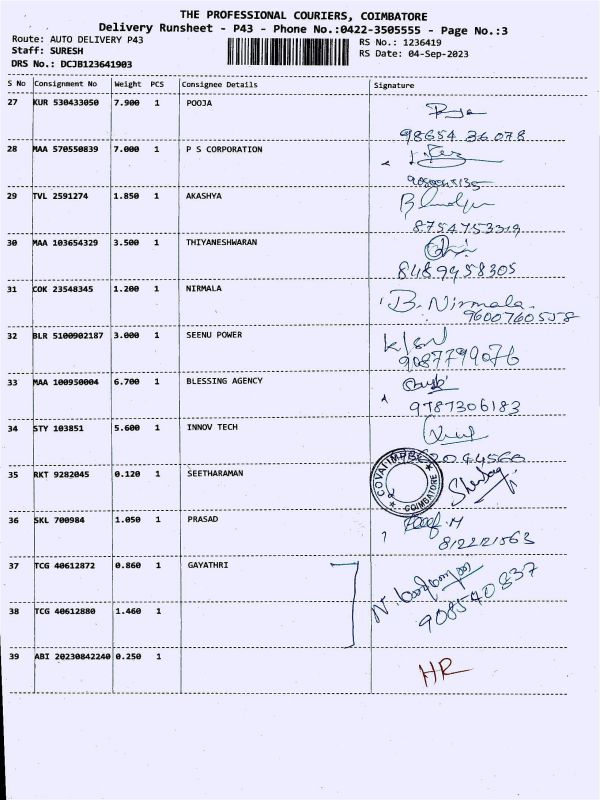 THE PROFESSIONAL COURIERS, COIMBATORE
Delivery Runsheet - P43 - Phone No.:0422-3505555 - Page No.:3
Route: AUTO DELIVERY P43 RS No.: 1236419
Staff: SURESH RS Date: 04-Sep-2023
DRS No.: DCJB123641903
S No Consignment No Weight PCS Consignee Details Signature
27 KUR 530433050 7.900 1 POOJA
98654 36078
28 MAA 570550839 7.000 1 P S CORPORATION
29 TVL 2591274 1.850 1 AKASHYA
8754753319
30 MAA 103654329 3.500 1 THIYANESHWARAN
8489958305
31 COK 23548345 1.200 1 NIRMALA
B. Nirmala
9600760558
32 BLR 5100902187 3.000 1 SEENU POWER
9087799076
33 MAA 100950004 6.700 1 BLESSING AGENCY
9787306183
34 STY 103851 5.600 1 INNOV TECH
35 RKT 9282045 0.120 1 SEETHARAMAN
COIMBATORE
36 SKL 700984 1.050 1 PRASAD
812221563
37 TCG 40612872 0.860 1 GAYATHRI
908540837
38 TCG 40612880 1.460 1
39 ABI 20230842240 0.250 1
HR